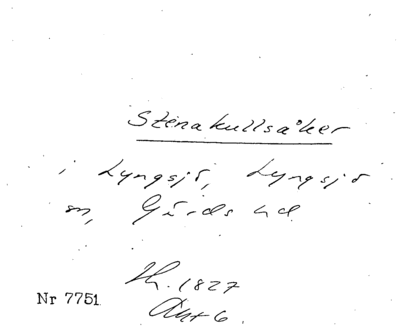 Stenakullsåker
i Lyngsjö, Lyngsjö
sn, Gärds hd
Th. 1827
Akt 6.
Nr 7751